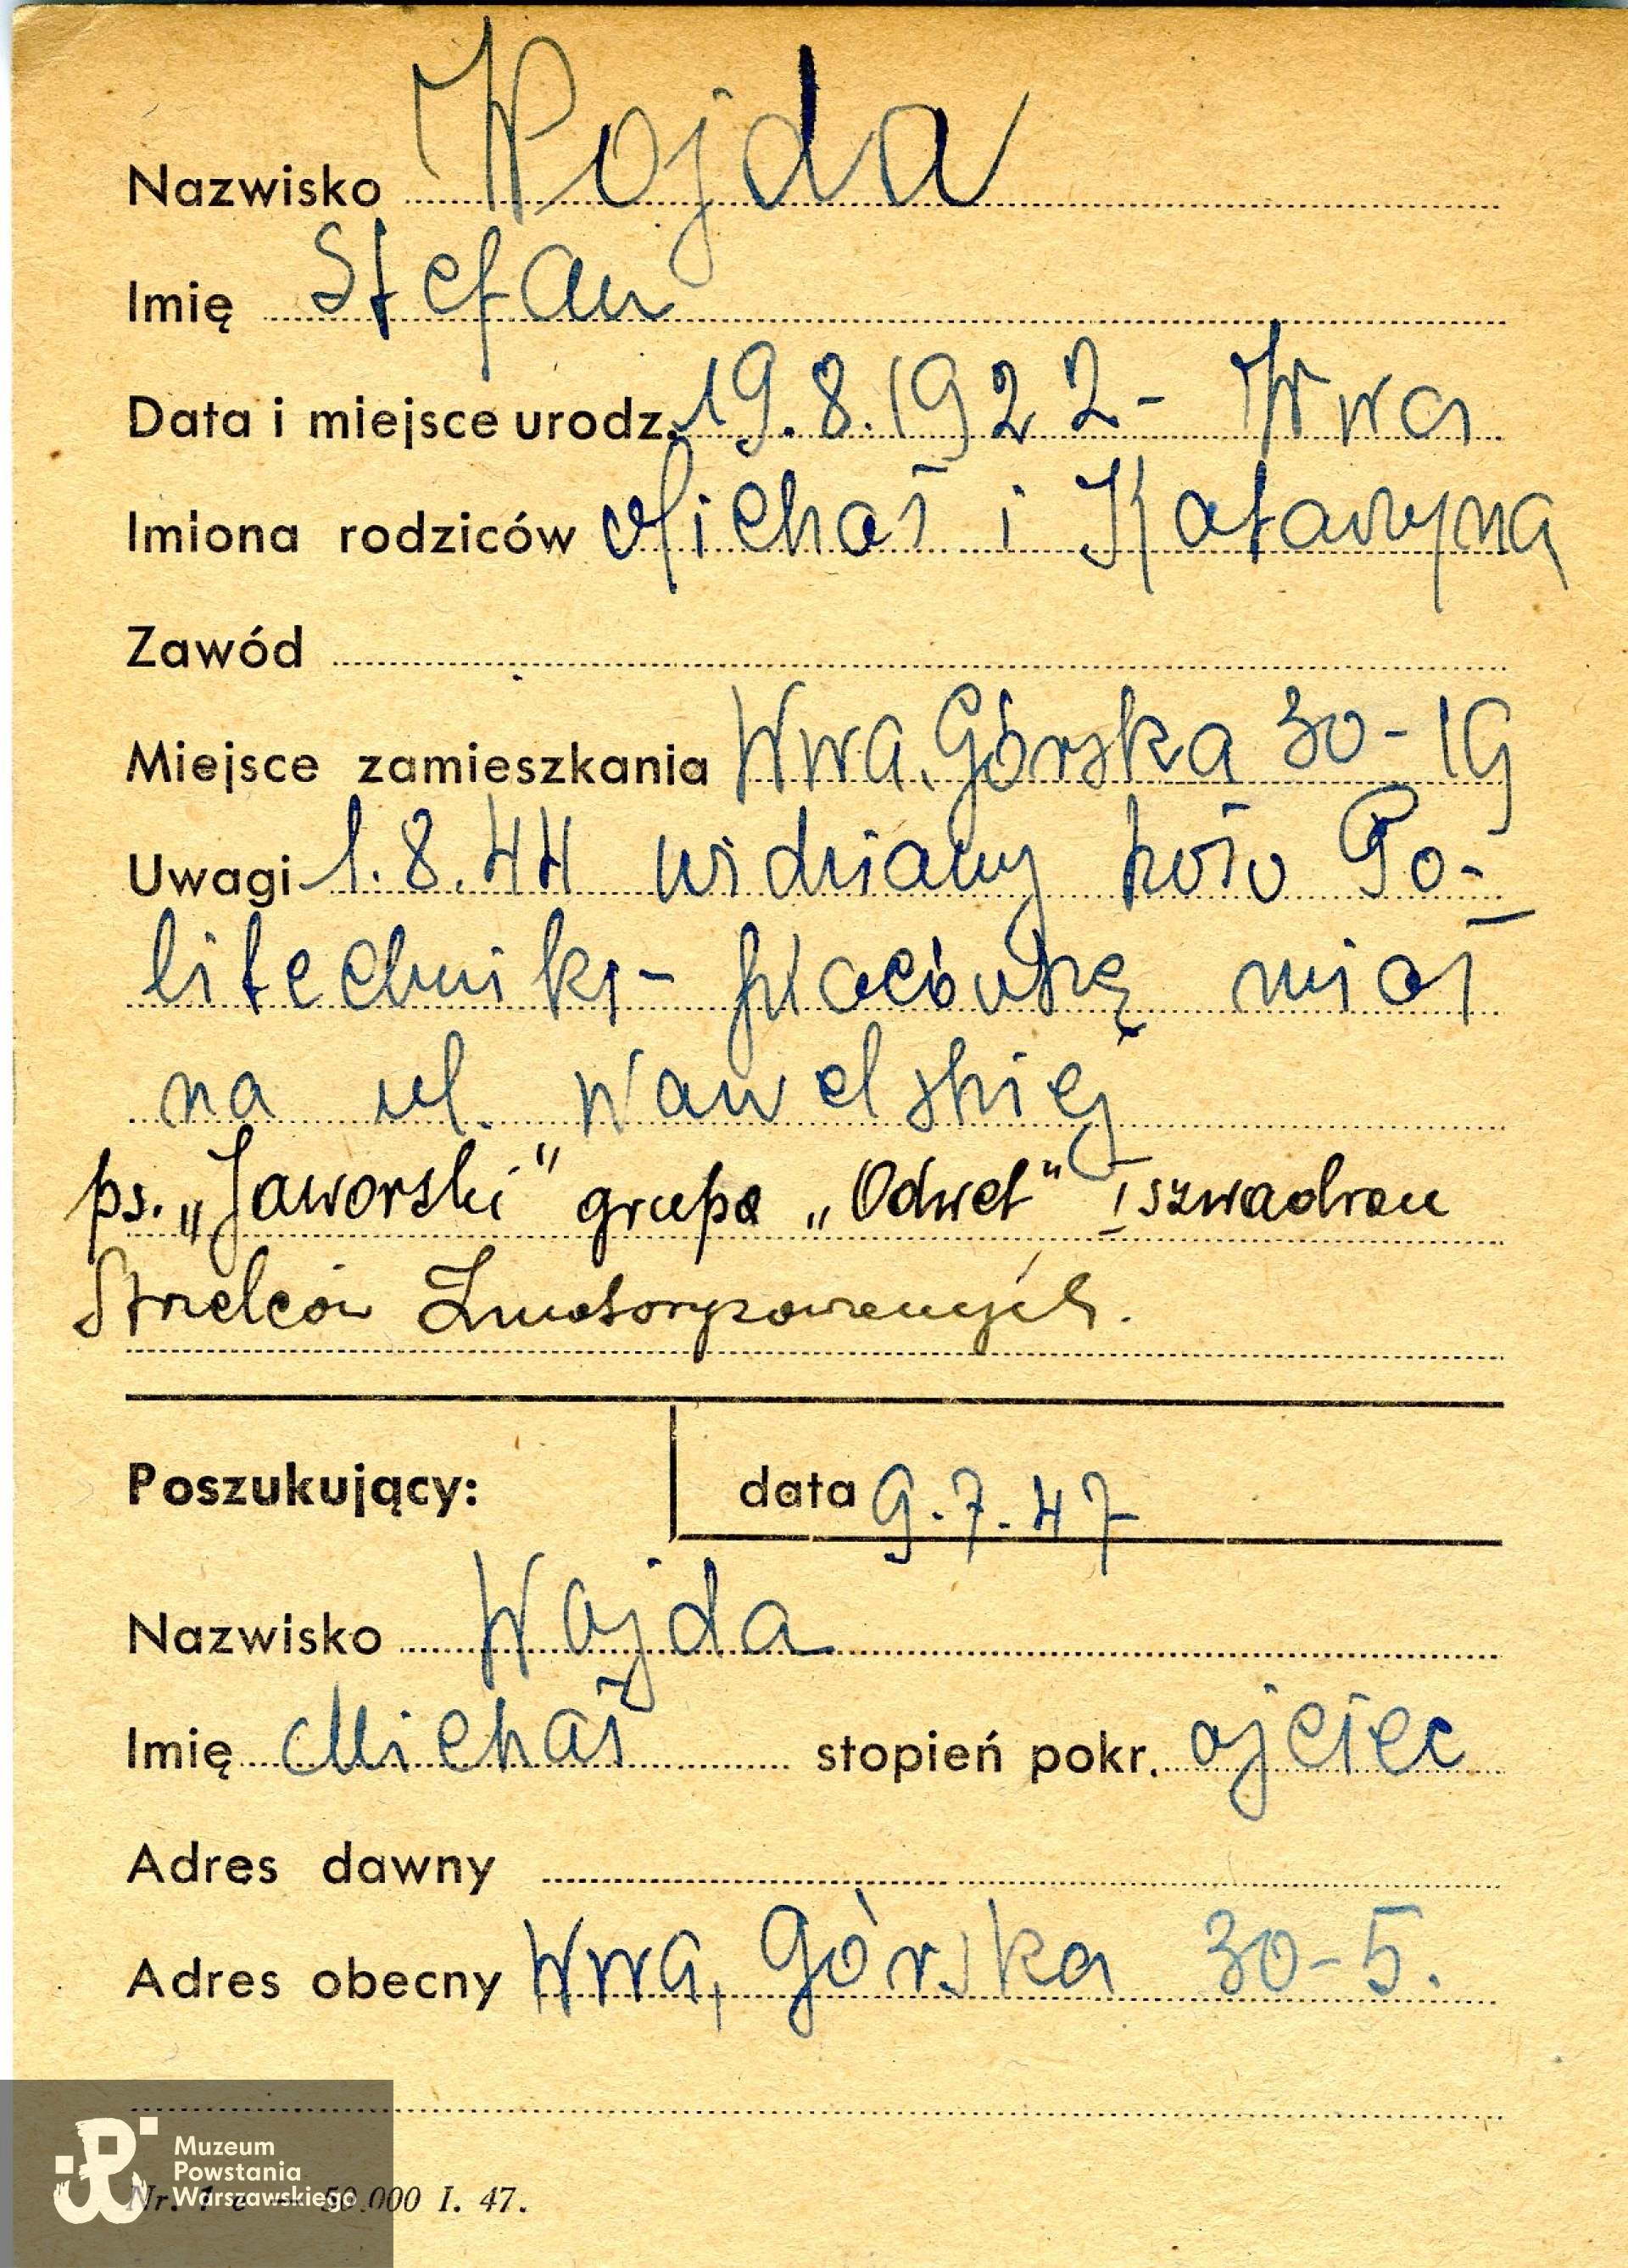 Nazwisko Wojda
Imię Stefan
Data i miejsce urodz. 19.8.1922 - Wwa
Imiona rodziców Michał i Katarzyna
Zawód
Miejsce zamieszkania Wwa, Górska 30-19
Uwagi 1.8.44 widziany koło Po-
litechniki - placówkę miał
na ul. Wawelskiej
ps. „Jaworski" grupa „Odwet" I szwadron
Strzelców Zmotoryzowanych.
Poszukujący: data 9.7.47
Nazwisko Wojda
Imię Michał stopień pokr. ojciec
Adres dawny
Adres obecny Wwa, Górska 30-5.
Muzeum
Powstania
Warszawskiego
Nr. 1 c — 50.000 I. 47.